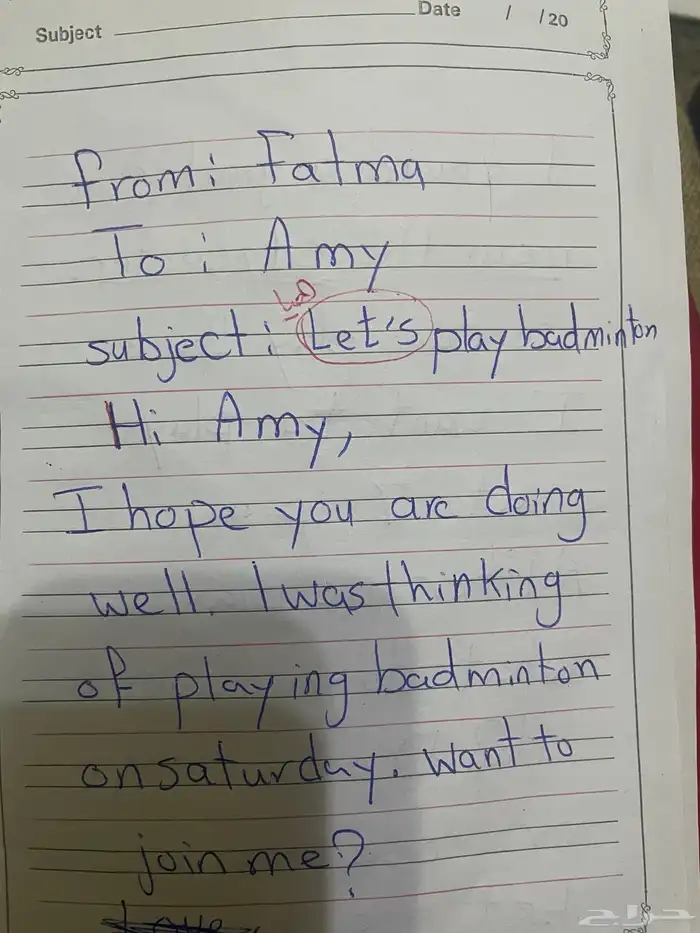 Subject Date / / 20
from: Fatma
To: Amy
subject: Let's play badminton
Hi Amy,
I hope you are doing
well. I was thinking
of playing badminton
on saturday. want to
join me?
حراج